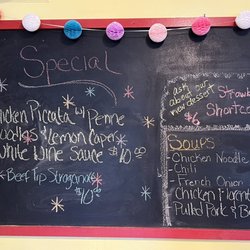 Special
Chicken Piccata w/ Penne
Noodles & Lemon Caper
White Wine Sauce $10.00
*Beef Tip Stroganoff
$10.00
ask
about our
new dessert
$6
Soups
Chicken Noodle
Chili
French Onion
Chicken
Pulled Pork &